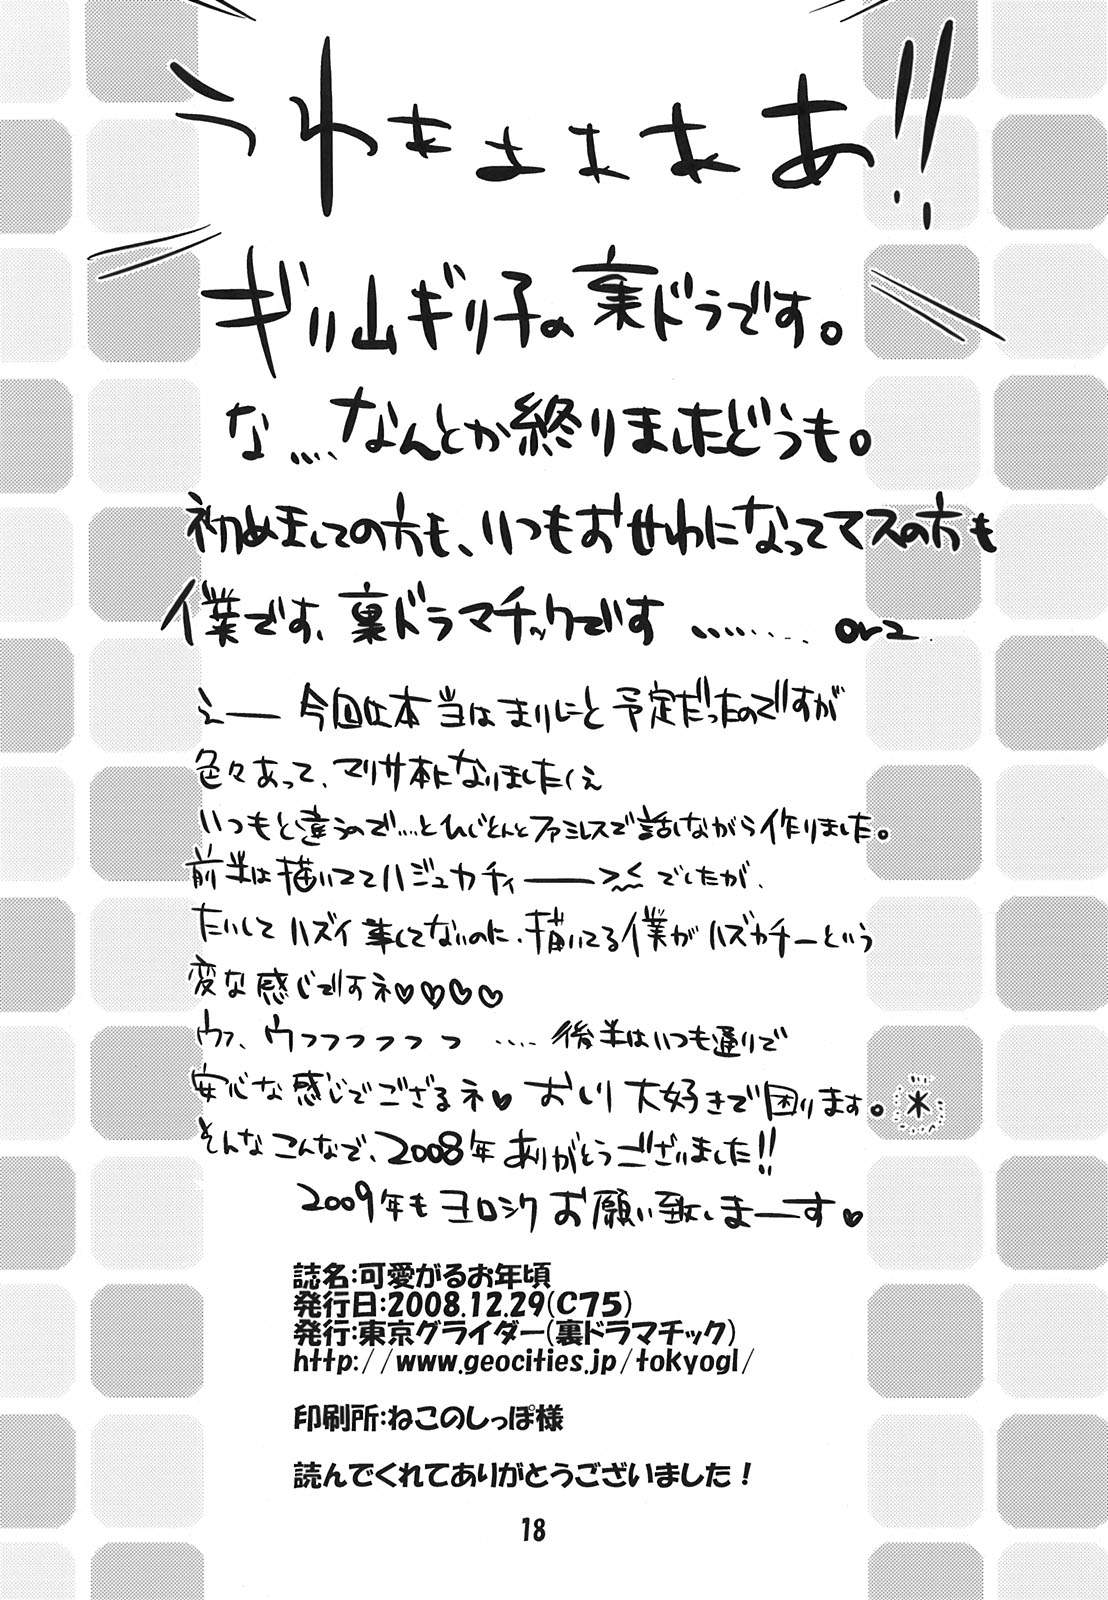 うわぁぁぁぁあ!!
ギリ山ギリ子の裏ドラです。
な....なんとか終りましたどうも。
初めましての方も、いつもおせわになってマスの方も
僕です、裏ドラマチックです ......... orz
えー 今回は本当はまりにと予定だったのですが
色々あって、マリサ本になりました(え
いつもと違うので....とひじとんとファミレスで話しながら作りました。
前半は描いててハジュカチィー><でしたが、
たいしてハズイ事してないのに、描いてる僕がハズカチーという
変な感じですネ♡♡♡♡
ウフ、ウフフフフフフ .... 後半はいつも通りで
安心な感じでござるネ♡ おしり大好きで困ります。*
そんなこんなで、2008年ありがとうございました!!
2009年もヨロシクお願い致しまーす♡
誌名:可愛がるお年頃
発行日:2008.12.29(C75)
発行:東京グライダー(裏ドラマチック)
http://www.geocities.jp/tokyogl/
印刷所:ねこのしっぽ様
読んでくれてありがとうございました!
18